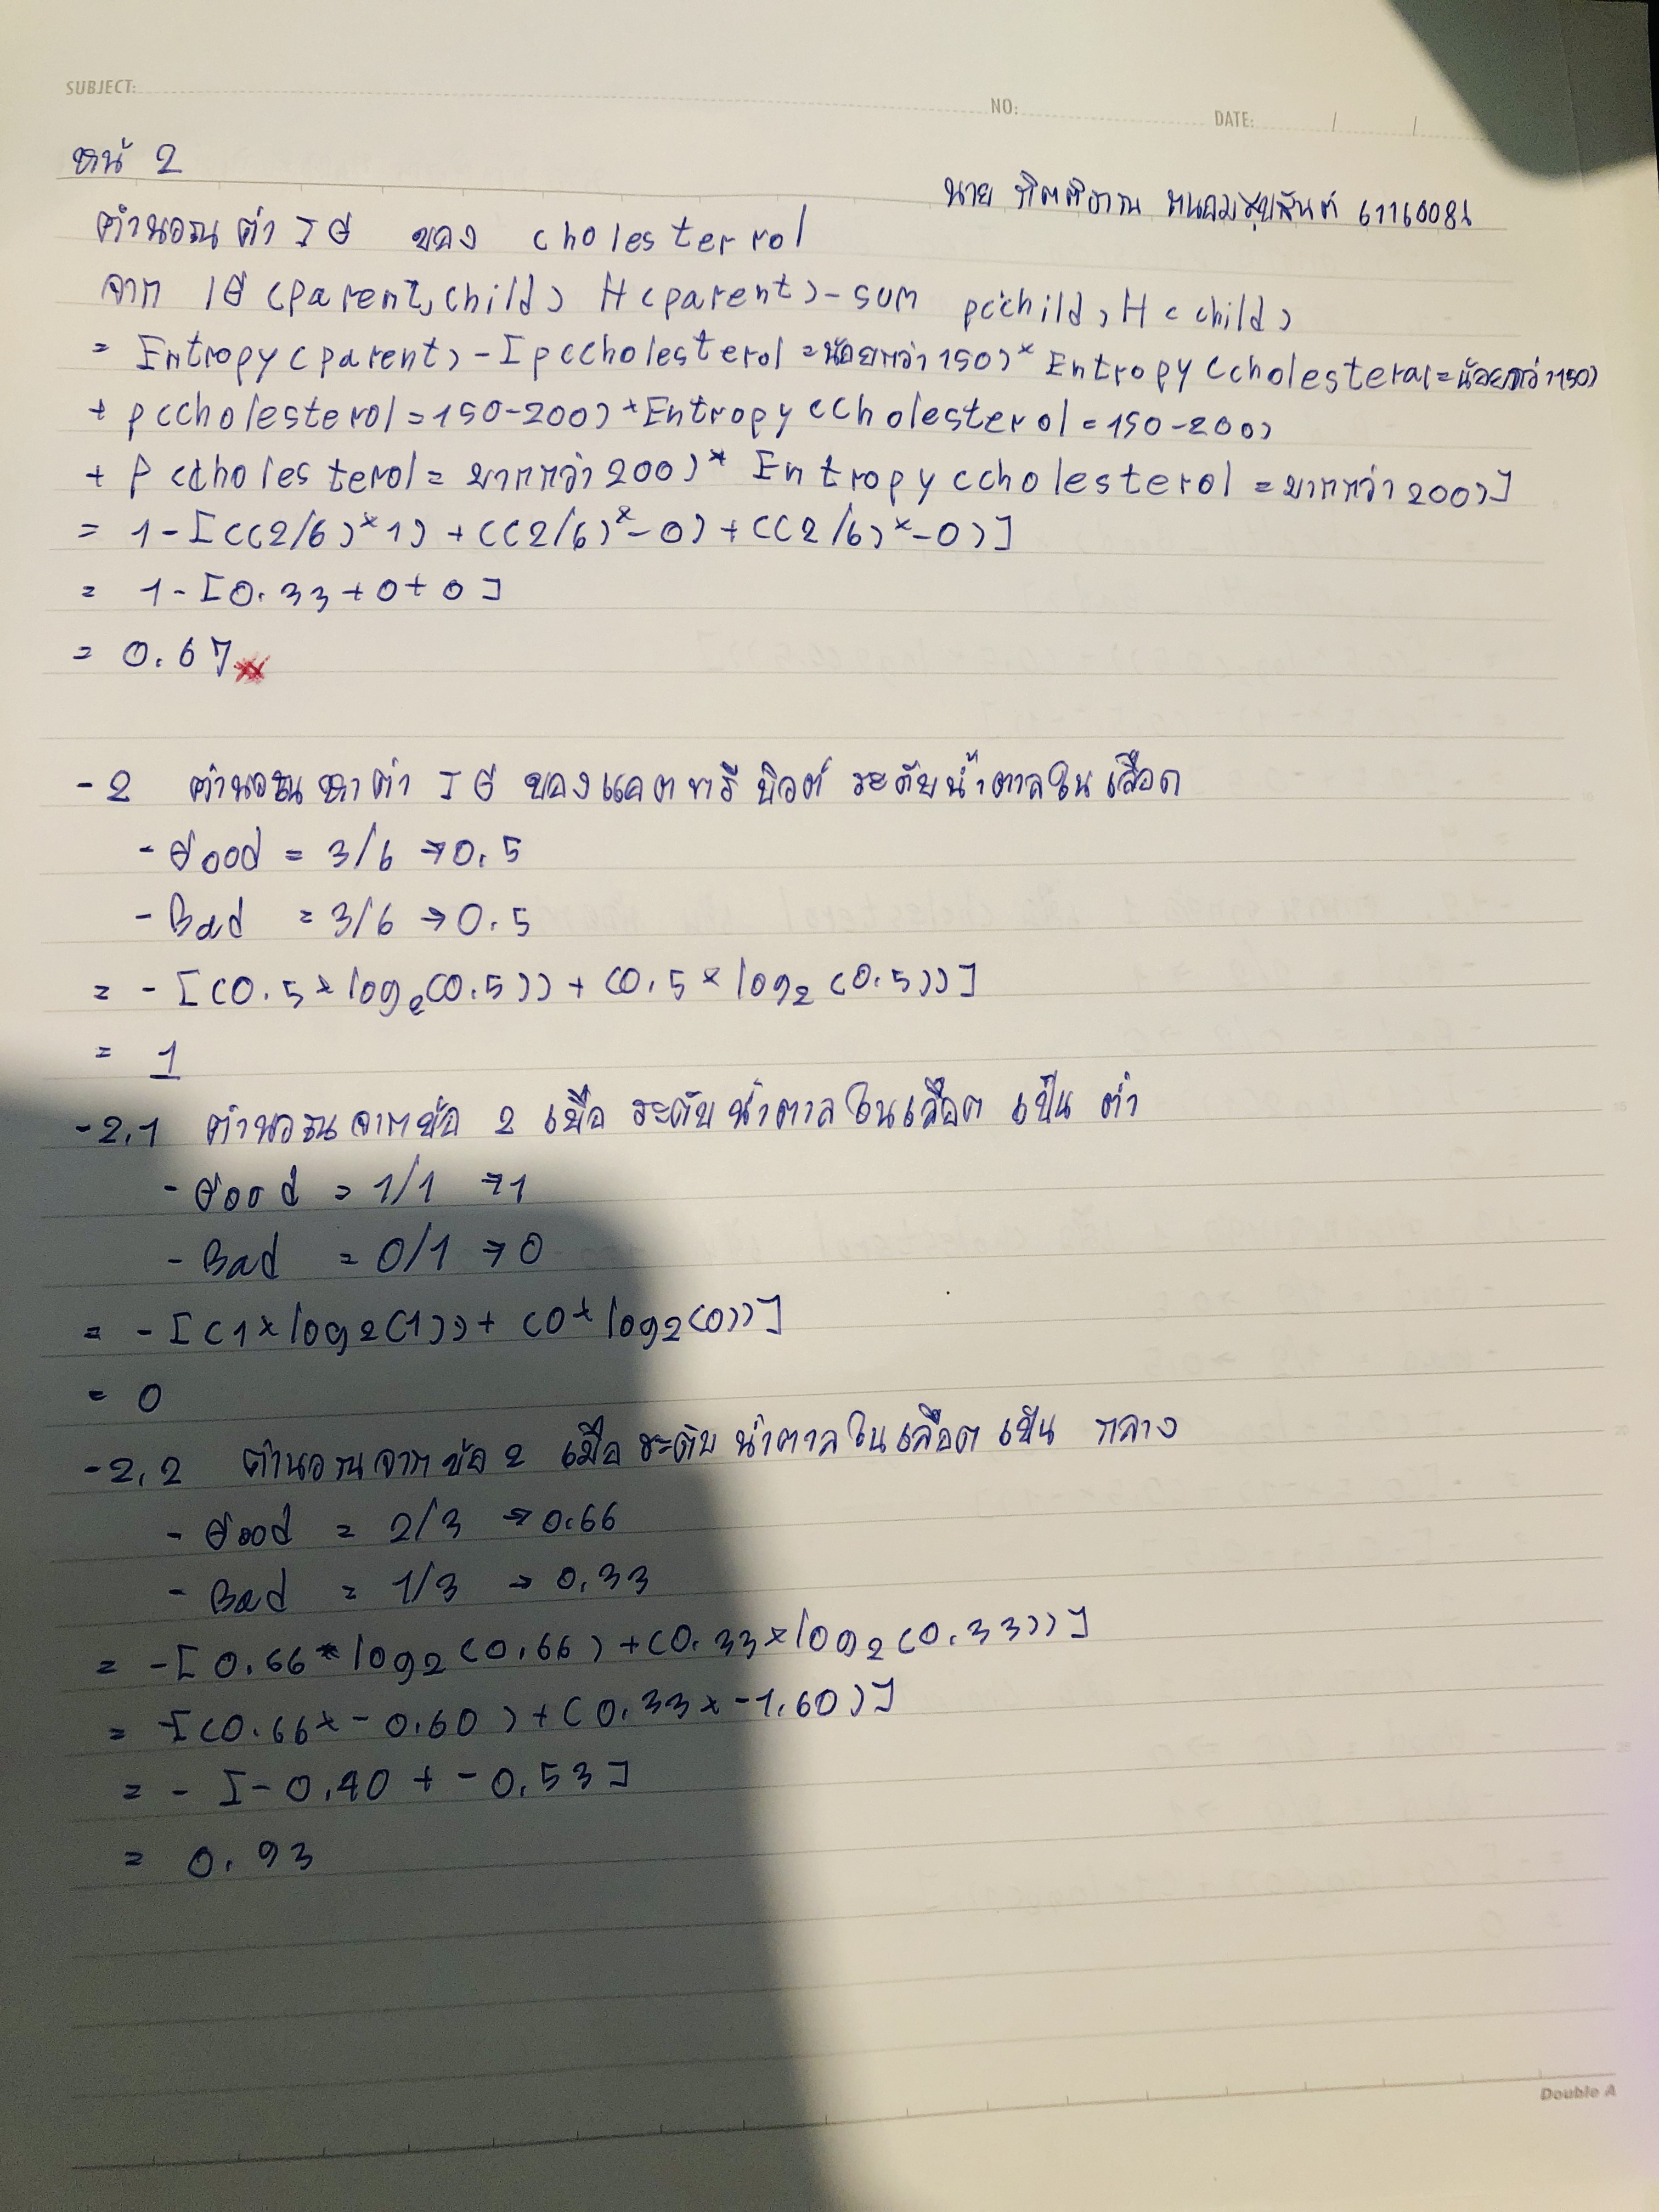 SUBJECT:
NO:
DATE: / /
หน้ 2
นาย กิตติธาณ ถนอมสุขสันต์ 61160082
คำนวณ ค่า IG ของ cholesterrol
จาก IG (parent, child) H(parent)-sum p(child) H(child)
= Entropy(parent)-[p(cholesterol = น้อยกว่า 150)* Entropy(cholesterol = น้อยกว่า 150)
+ p(cholesterol = 150-200)*Entropy(cholesterol = 150-200)
+ P(cholesterol = มากกว่า 200)* Entropy(cholesterol = มากกว่า 200)]
= 1-[((2/6)*1) + ((2/6)*-0) + ((2/6)*-0)]
= 1-[0.33+0+0]
= 0.67
-2 คำนวณ หาค่า IG ของแอตทรี บิวต์ ระดับน้ำตาลในเลือด
- Good = 3/6 → 0.5
- Bad = 3/6 → 0.5
= - [(0.5*log2(0.5)) + (0.5*log2(0.5))]
= 1
-2.1 คำนวณ จากข้อ 2 เมื่อ ระดับน้ำตาลในเลือด เป็น ต่ำ
- Good = 1/1 → 1
- Bad = 0/1 → 0
= - [(1*log2(1)) + (0*log2(0))]
= 0
-2.2 คำนวณจาก ข้อ 2 เมื่อ ระดับ น้ำตาลในเลือด เป็น กลาง
- Good = 2/3 → 0.66
- Bad = 1/3 → 0.33
= -[0.66*log2(0.66)+(0.33*log2(0.33))]
= -[(0.66*-0.60)+(0.33*-1.60)]
= - [-0.40 + -0.53]
= 0.93
Double A